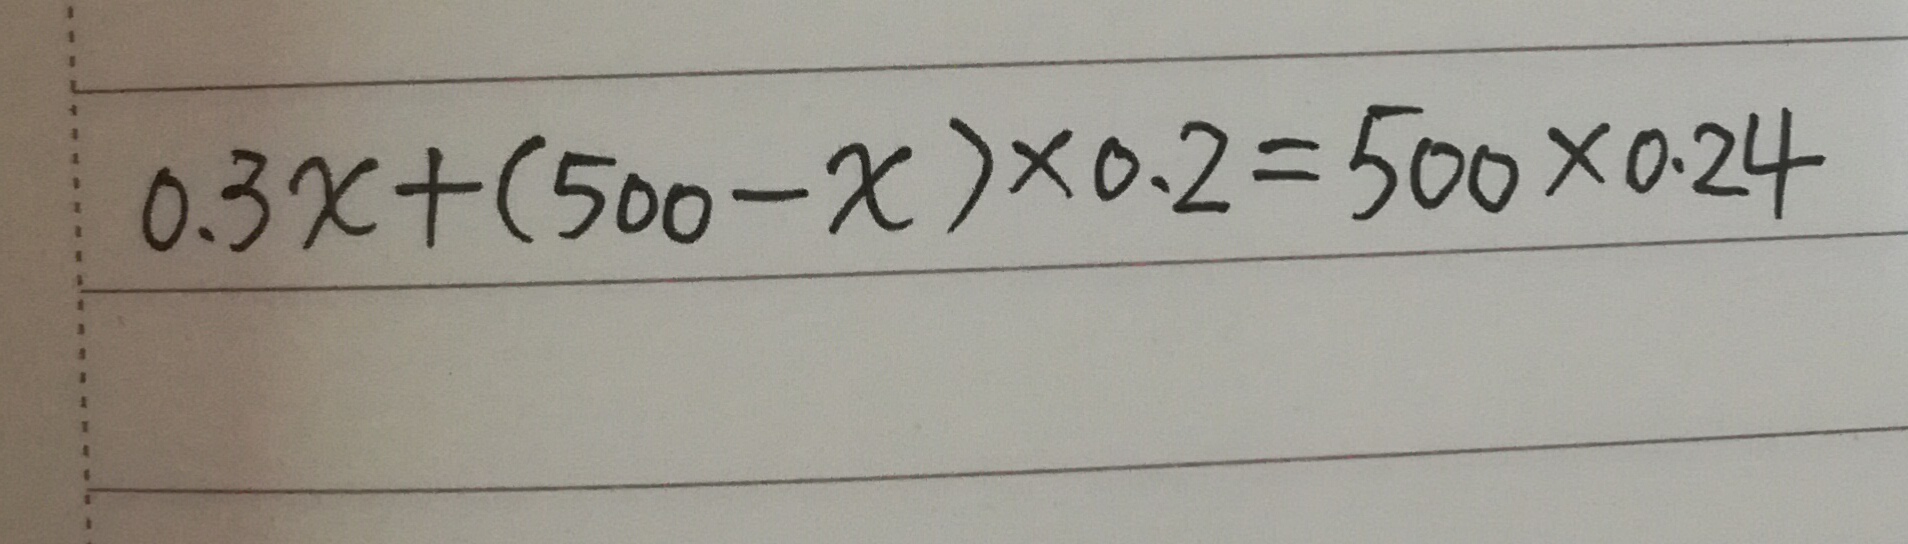 0.3x+(500-x)×0.2=500×0.24